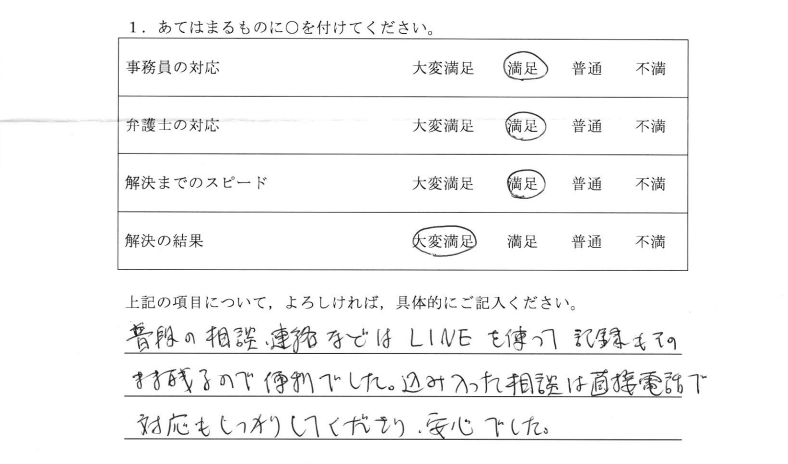 1．あてはまるものに○を付けてください。
事務員の対応 大変満足 満足 普通 不満
弁護士の対応 大変満足 満足 普通 不満
解決までのスピード 大変満足 満足 普通 不満
解決の結果 大変満足 満足 普通 不満
上記の項目について，よろしければ，具体的にご記入ください。
普段の相談、連絡などはLINEを使って記録もその
まま残るので便利でした。込み入った相談は直接電話で
対応もしっかりしてくださり、安心でした。